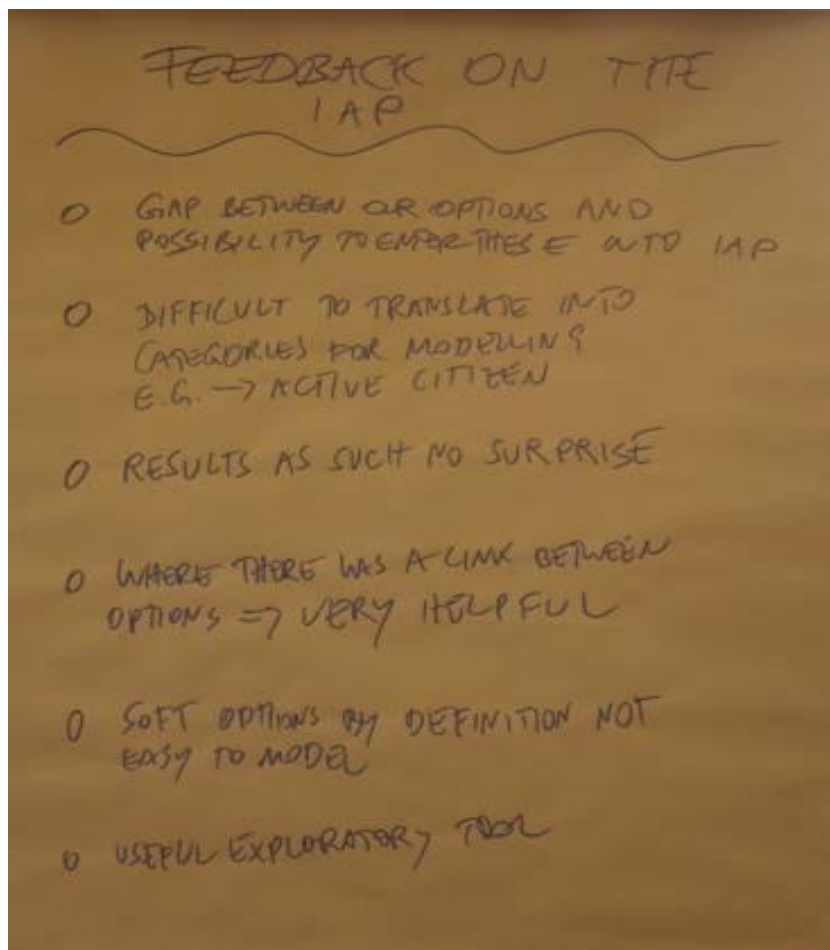 FEEDBACK ON THE
IAP
O GAP BETWEEN OUR OPTIONS AND
POSSIBILITY TO ENTER THESE INTO IAP
O DIFFICULT TO TRANSLATE INTO
CATEGORIES FOR MODELLING
E.G. → ACTIVE CITIZEN
O RESULTS AS SUCH NO SURPRISE
O WHERE THERE WAS A LINK BETWEEN
OPTIONS => VERY HELPFUL
O SOFT OPTIONS BY DEFINITION NOT
EASY TO MODEL
O USEFUL EXPLORATORY TOOL